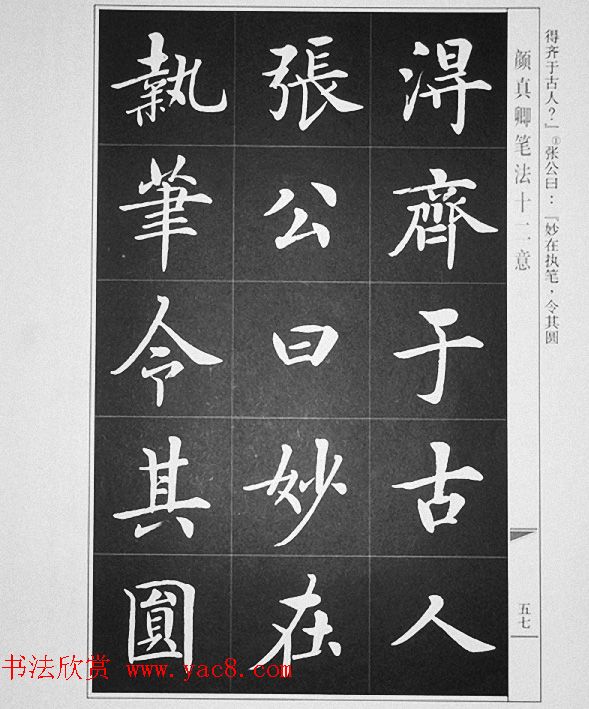 得齐于古人？』①张公曰：『妙在执笔，令其圆
颜真卿笔法十二意
五七
淂齊于古人
張公曰妙在
執筆令其圓
书法欣赏 www.yac8.com